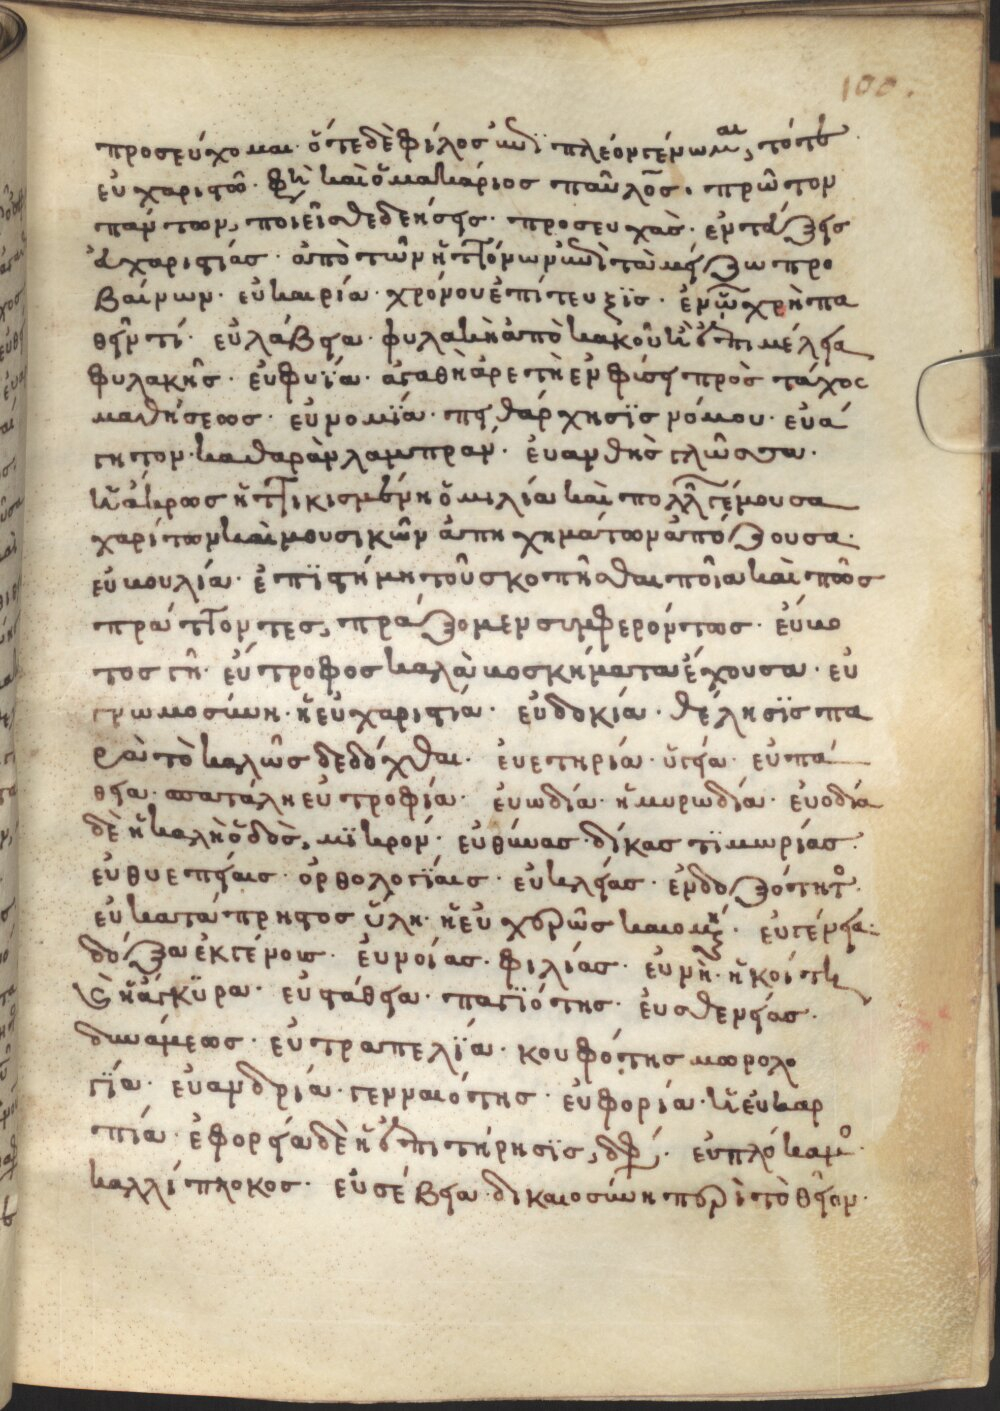 100.
προσεύχομαι· ὅτε δὲ φίλος πλέον γένωμαι, τότε
εὐχαριστῶ· φησὶ καὶ ὁ μακάριος παῦλος· πρῶτον
πάντων, ποιεῖσθε δεήσεις· προσευχὰς· ἐντεύξεις
εὐχαριστίας· ἀπὸ τῶν ἡττόνων ἐπὶ τὰ μείζω προ
βαίνων· εὐκαιρία· χρόνου ἐπίτευξϊς· ἐν ᾧ χρὴ πα
θεῖν τί· εὐλάβεια· φυλακὴ ἀπὸ κακοῦ ἢ ἐπιμέλεια
φυλακῆς· εὐφυΐα· ἀγαθὴ ἀρετὴ ἐν φύσει πρὸς τάχος
μαθήσεως· εὐνομϊα· πειθάρχησϊς νόμου· εὐα
γητον· καθαρὰν λαμπραν· εὐανθὴς γλῶσσα·
ἡ ἄκρως ἠττικισμένη ὁμιλία καὶ πολλῆς γέμουσα
χαρίτων καὶ μουσικῶν ἀπηχημάτων ἀπόζουσα·
εὐβουλία· ἐπϊστήμη τοῦ σκοπεῖσθαι ποῖα καὶ πῶς
πράττοντες, πράξομεν συμφερόντως· εὔβο
τος γῆ· εὔτροφος καλὰ βοσκήματα ἔχουσα· εὐ
γνωμοσύνη· ἡ εὐχαριστία· εὐδοκία· θέλησϊς πα
ρὰ τὸ καλῶς δεδόχθαι· εὐετηρία· ὑγεία· εὐπά
θεια· σπατάλη εὐτροφία· εὐωδία· ἡ μυρωδία· εὐοδία
δὲ ἡ καλὴ ὁδὸς, μϊκρόν· εὐθύνας· δίκας τϊμωρίας·
εὐθυεπείαις· ὀρθολογΐαις· εὐκλείας· ἐνδοξότητος·
εὐκατάπρηστος ὕλη· ἡ εὐχερῶς καιομένη· εὐγένεια·
δόξα ἐκ γένους· εὐνοίας· φιλίας· εὐνὴ· ἡ κοίτη
ἢ ἄγκϋρα· εὐστάθεια· παγϊότης· εὐσθενείας·
δυνάμεως· εὐτραπελϊα· κουφότης μωρολο
γΐα· εὐανδρία· γενναιότης· εὐφορία· ἡ εὐκαρ
πία· ἐφορεία δὲ ἡ ἐπιτήρησϊς, εὐπλόκαμος
καλλίπλοκος· εὐσέβεια· δικαιοσύνη περὶ τὸ θεῖον·